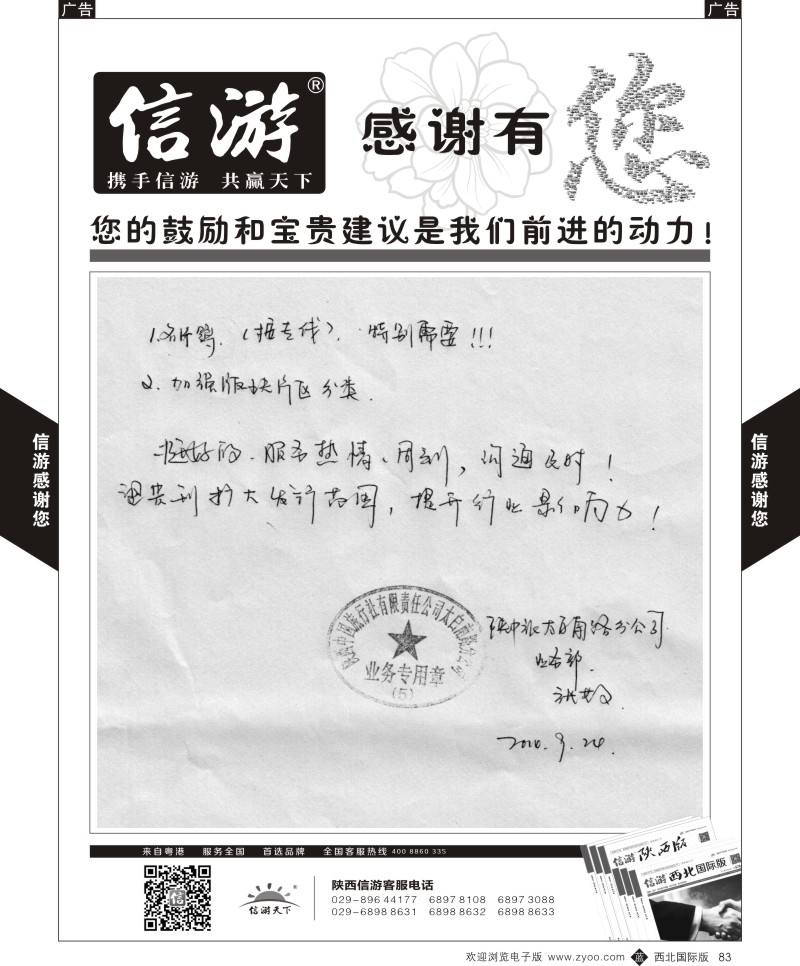 广告
广告
信游®
携手信游 共赢天下
感谢有
您
您的鼓励和宝贵建议是我们前进的动力！
特别需要!!!
2. 加强版块片区分类.
挺好的. 服务热情、周到, 沟通及时!
祝贵刊扩大发行范围, 提升行业影响力!
陕西中国旅行社有限责任公司太白南路分公司
业务专用章
(5)
陕中旅太白南路分公司
业务部
2010.9.24.
信游感谢您
信游感谢您
来自粤港 服务全国 首选品牌 全国客服热线 400 8860 335
信游
信游天下®
陕西信游客服电话
029-896 44177 6897 8108 6897 3088
029-6898 8631 6898 8632 6898 8633
信游 陕西版
信游 西北国际版
欢迎浏览电子版 www.zyoo.com 蓝 西北国际版 83